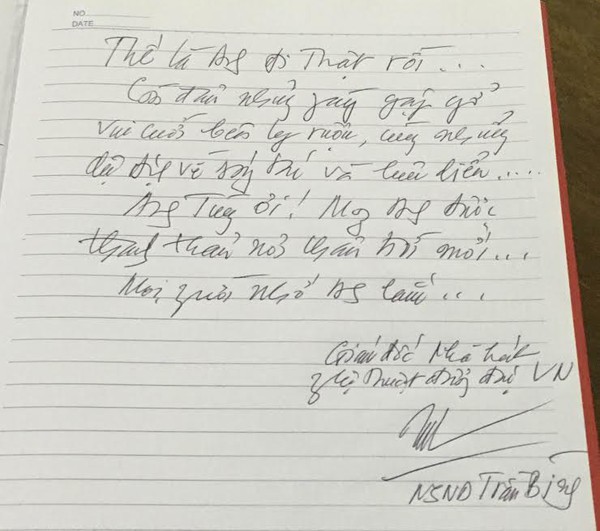 NO.
DATE
Thế là Ang đi Thật rồi...
Còn đâu những gây gặp gỡ
Vui cười bên ly rượu, cùng những
dự định về sáng tác và biểu diễn....
Ang Tùng ơi! Mong Ang được
thanh thản nơi thân thế mới...
Mọi người nhớ Ang lắm...
Giám đốc Nhà hát
Nghệ thuật Đương đại VN
NSND Trần Bình